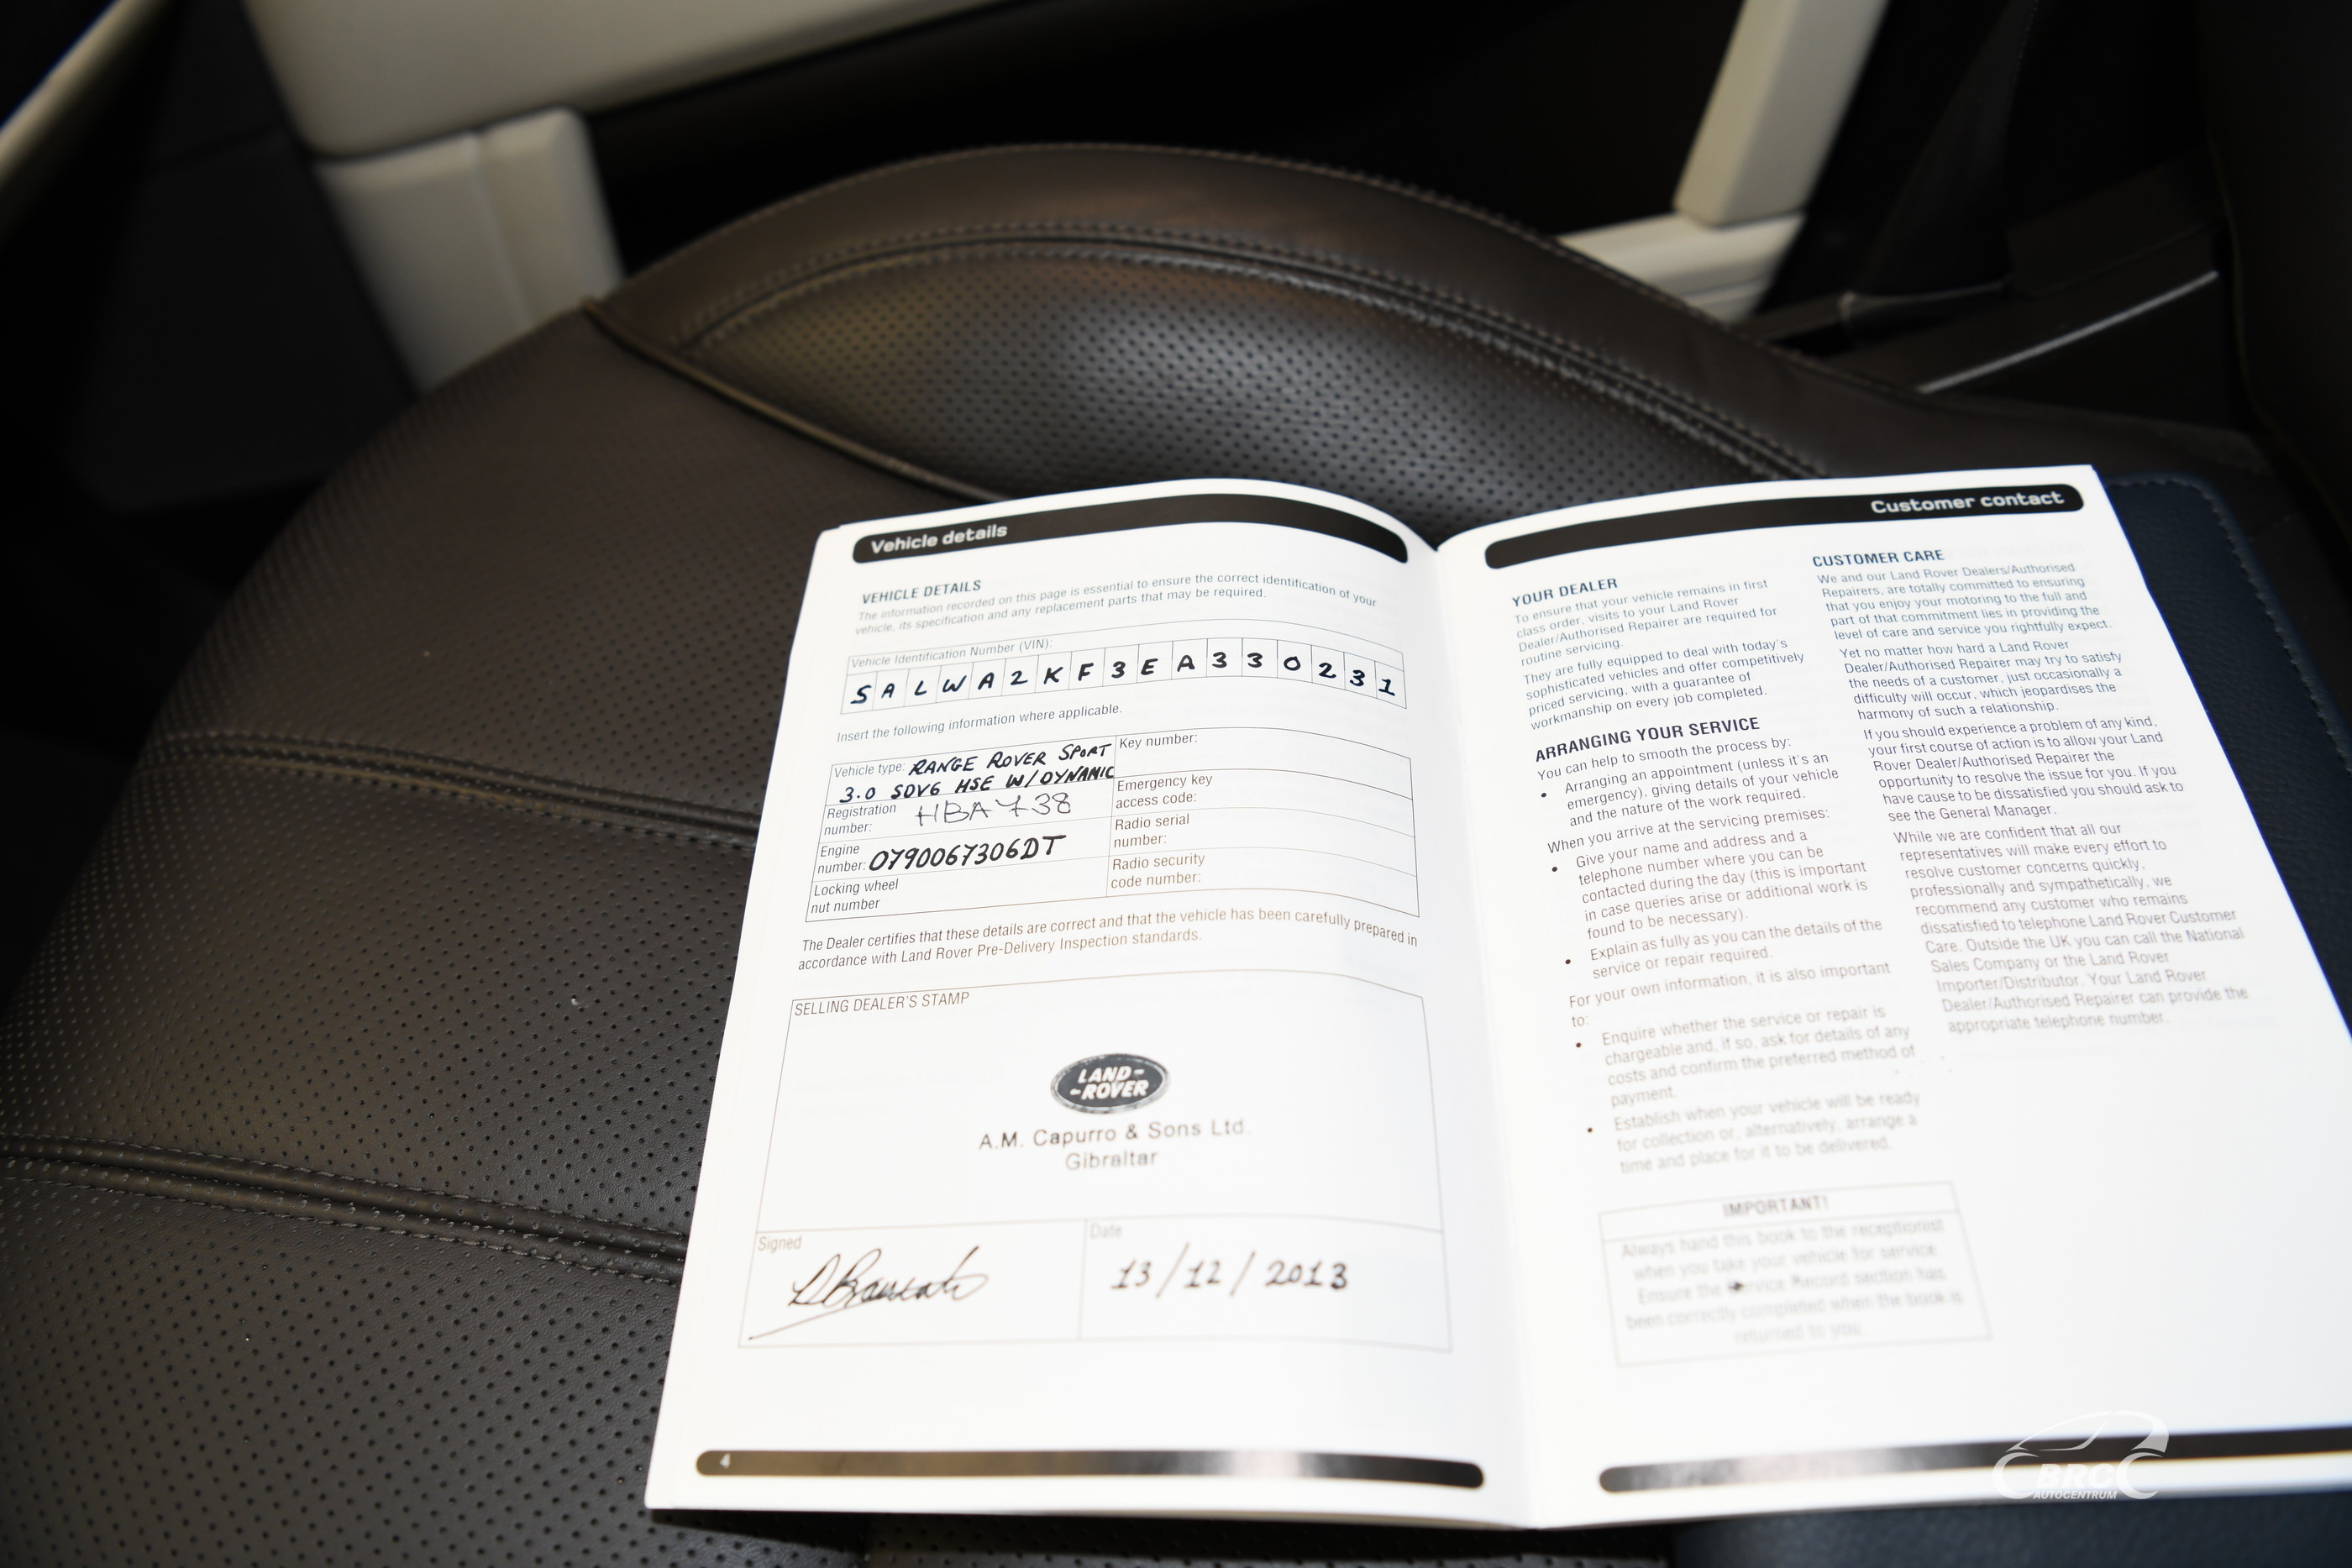 Vehicle details
VEHICLE DETAILS
The information recorded on this page is essential to ensure the correct identification of your
vehicle, its specification and any replacement parts that may be required.
Vehicle Identification Number (VIN):
S A L W A 2 K F 3 E A 3 3 0 2 3 1
Insert the following information where applicable.
Vehicle type: RANGE ROVER SPORT
3.0 SDV6 HSE W/DYNAMIC
Registration
number: HBA 738
Engine
number: 0790067306DT
Locking wheel
nut number
Key number:
Emergency key
access code:
Radio serial
number:
Radio security
code number:
The Dealer certifies that these details are correct and that the vehicle has been carefully prepared in
accordance with Land Rover Pre-Delivery Inspection standards.
SELLING DEALER'S STAMP
LAND-
-ROVER
A.M. Capurro & Sons Ltd.
Gibraltar
Signed
Date
13/12/2013
4
Customer contact
YOUR DEALER
To ensure that your vehicle remains in first
class order, visits to your Land Rover
Dealer/Authorised Repairer are required for
routine servicing.
They are fully equipped to deal with today's
sophisticated vehicles and offer competitively
priced servicing, with a guarantee of
workmanship on every job completed.
ARRANGING YOUR SERVICE
You can help to smooth the process by:
• Arranging an appointment (unless it's an
emergency), giving details of your vehicle
and the nature of the work required.
When you arrive at the servicing premises:
• Give your name and address and a
telephone number where you can be
contacted during the day (this is important
in case queries arise or additional work is
found to be necessary).
• Explain as fully as you can the details of the
service or repair required.
For your own information, it is also important
to:
• Enquire whether the service or repair is
chargeable and, if so, ask for details of any
costs and confirm the preferred method of
payment.
• Establish when your vehicle will be ready
for collection or, alternatively, arrange a
time and place for it to be delivered.
IMPORTANT!
Always hand this book to the receptionist
when you take your vehicle for service.
Ensure the Service Record section has
been correctly completed when the book is
returned to you.
CUSTOMER CARE
We and our Land Rover Dealers/Authorised
Repairers, are totally committed to ensuring
that you enjoy your motoring to the full and
part of that commitment lies in providing the
level of care and service you rightfully expect.
Yet no matter how hard a Land Rover
Dealer/Authorised Repairer may try to satisfy
the needs of a customer, just occasionally a
difficulty will occur, which jeopardises the
harmony of such a relationship.
If you should experience a problem of any kind,
your first course of action is to allow your Land
Rover Dealer/Authorised Repairer the
opportunity to resolve the issue for you. If you
have cause to be dissatisfied you should ask to
see the General Manager.
While we are confident that all our
representatives will make every effort to
resolve customer concerns quickly,
professionally and sympathetically, we
recommend any customer who remains
dissatisfied to telephone Land Rover Customer
Care. Outside the UK you can call the National
Sales Company or the Land Rover
Importer/Distributor. Your Land Rover
Dealer/Authorised Repairer can provide the
appropriate telephone number.
BRC
AUTOCENTRUM